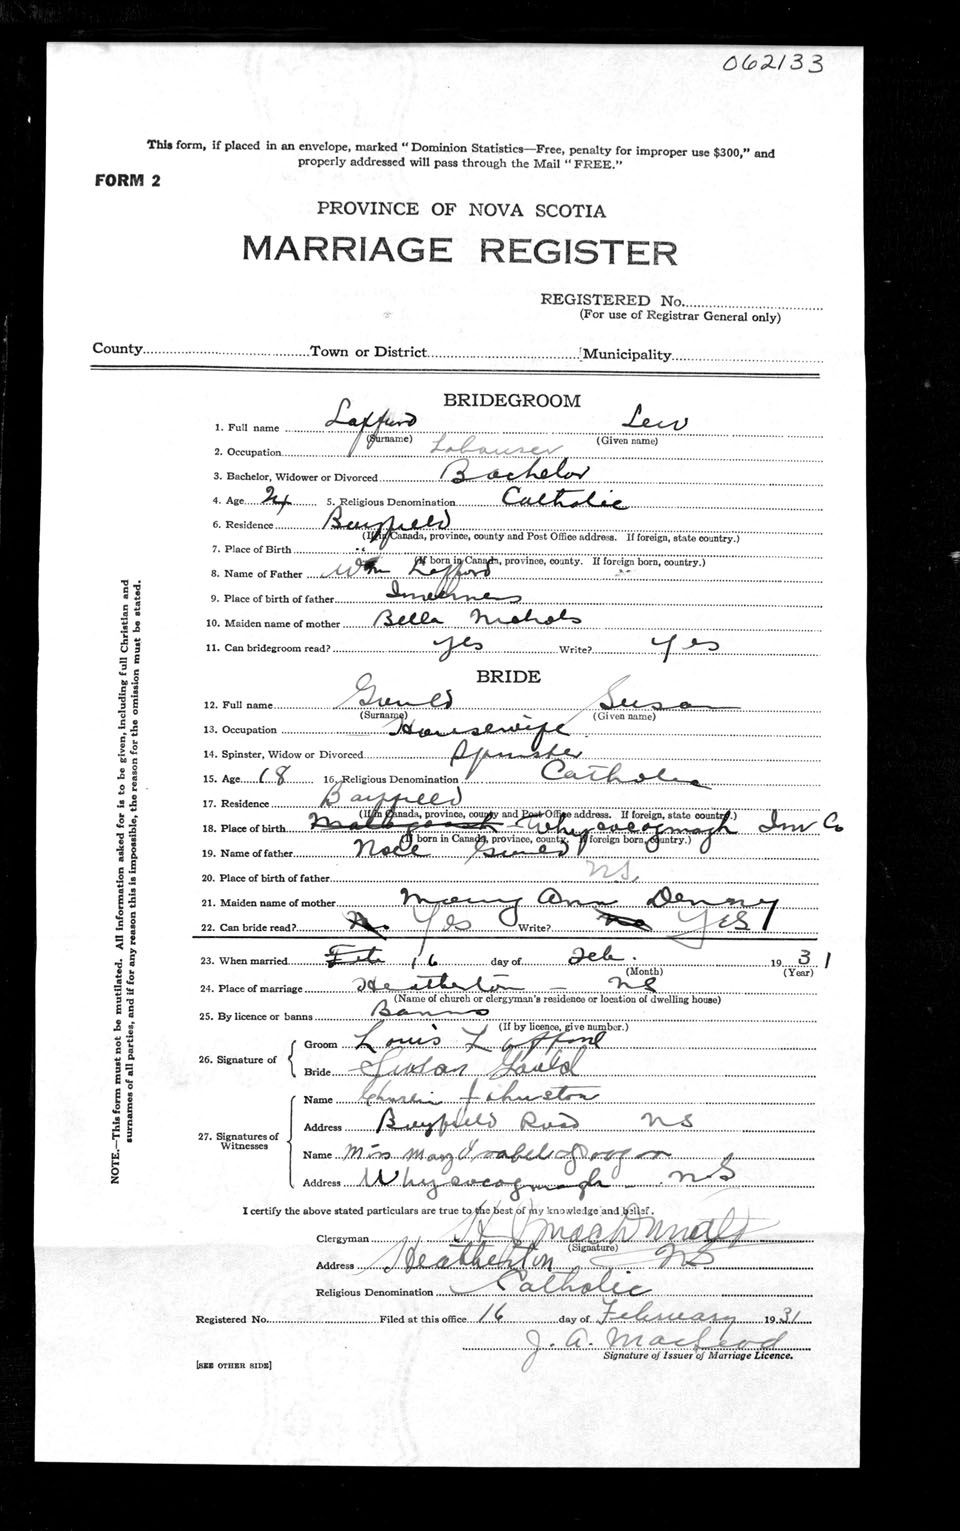 062133
This form, if placed in an envelope, marked "Dominion Statistics—Free, penalty for improper use $300," and
properly addressed will pass through the Mail "FREE."
FORM 2
PROVINCE OF NOVA SCOTIA
MARRIAGE REGISTER
REGISTERED No.
(For use of Registrar General only)
County Town or District Municipality
BRIDEGROOM
1. Full name Lafford Lew
(Surname) (Given name)
2. Occupation Labourer
3. Bachelor, Widower or Divorced Bachelor
4. Age 24 5. Religious Denomination Catholic
6. Residence Bayfield
(If in Canada, province, county and Post Office address. If foreign, state country.)
7. Place of Birth "
(If born in Canada, province, county. If foreign born, country.)
8. Name of Father Wm Lafford
9. Place of birth of father Inverness
10. Maiden name of mother Bella Nichols
11. Can bridegroom read? Yes Write? Yes
BRIDE
12. Full name Gould Susan
(Surname) (Given name)
13. Occupation Housewife
14. Spinster, Widow or Divorced Spinster
15. Age 18 16. Religious Denomination Catholic
17. Residence Bayfield
(If in Canada, province, county and Post Office address. If foreign, state country.)
18. Place of birth Whycocogmagh Inv Co
(If born in Canada, province, county. If foreign born, country.)
19. Name of father Noel Gould
20. Place of birth of father NS
21. Maiden name of mother Mary Ann Denny
22. Can bride read? No Yes Write? No Yes
23. When married Feb 16 day of Feb. 1931
(Month) (Year)
24. Place of marriage Heatherton - NS
(Name of church or clergyman's residence or location of dwelling house)
25. By licence or banns Banns
(If by licence, give number.)
26. Signature of
Groom Louis Lafford
Bride Susan Gould
27. Signatures of Witnesses
Name Charlie Johnston
Address Bayfield Road NS
Name Miss Mary Isabel Googoo
Address Whycocogmagh - NS
I certify the above stated particulars are true to the best of my knowledge and belief.
Clergyman H MacDonald
(Signature)
Address Heatherton NS
Religious Denomination Catholic
Registered No. Filed at this office 16 day of February 1931
J. A. MacLeod
Signature of Issuer of Marriage Licence.
[SEE OTHER SIDE]
NOTE.—This form must not be mutilated. All information asked for is to be given, including full Christian and
surnames of all parties, and if for any reason this is impossible, the reason for the omission must be stated.